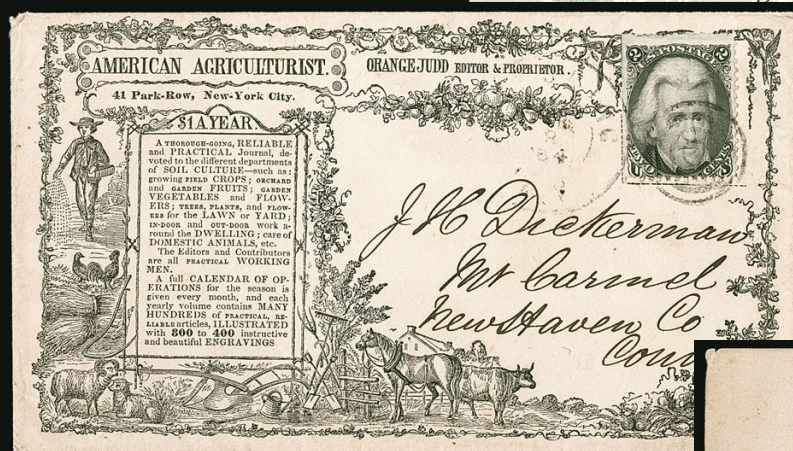 AMERICAN AGRICULTURIST.
41 Park-Row, New-York City.
ORANGE JUDD EDITOR & PROPRIETOR.
$1 A YEAR.
A THOROUGH-GOING, RELIABLE
and PRACTICAL Journal, de-
voted to the different departments
of SOIL CULTURE—such as:
growing FIELD CROPS; ORCHARD
and GARDEN FRUITS; GARDEN
VEGETABLES and FLOW-
ERS; TREES, PLANTS, and FLOW-
ERS for the LAWN or YARD;
IN-DOOR and OUT-DOOR work a-
round the DWELLING; care of
DOMESTIC ANIMALS, etc.
The Editors and Contributors
are all PRACTICAL WORKING
MEN.
A full CALENDAR OF OP-
ERATIONS for the season is
given every month, and each
yearly volume contains MANY
HUNDREDS of PRACTICAL, RE-
LIABLE articles, ILLUSTRATED
with 300 to 400 instructive
and beautiful ENGRAVINGS
2 POSTAGE 2
TWO CENTS
J H Dickerman
Mt Carmel
New Haven Co
Conn